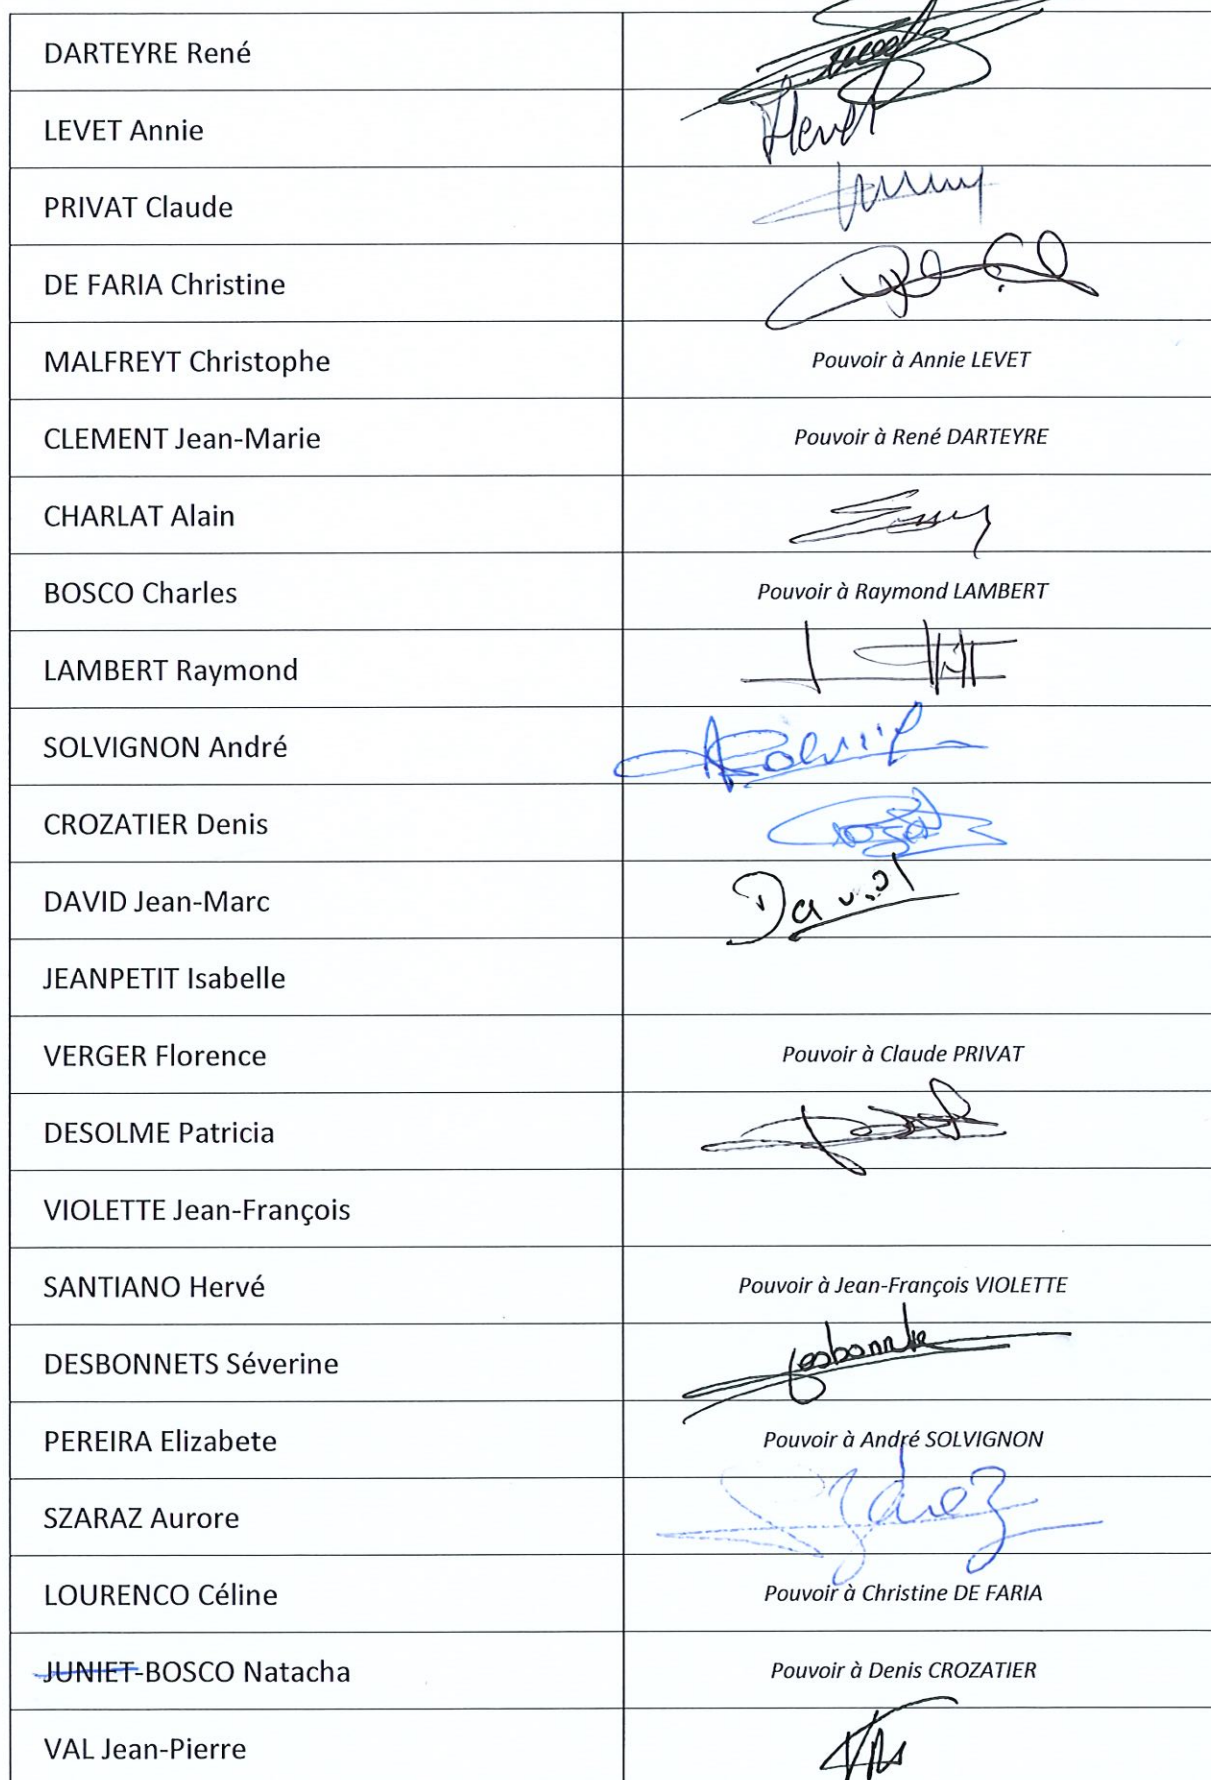 DARTEYRE René
LEVET Annie
Levet
PRIVAT Claude
DE FARIA Christine
MALFREYT Christophe Pouvoir à Annie LEVET
CLEMENT Jean-Marie Pouvoir à René DARTEYRE
CHARLAT Alain
BOSCO Charles Pouvoir à Raymond LAMBERT
LAMBERT Raymond
SOLVIGNON André
CROZATIER Denis
DAVID Jean-Marc David
JEANPETIT Isabelle
VERGER Florence Pouvoir à Claude PRIVAT
DESOLME Patricia
VIOLETTE Jean-François
SANTIANO Hervé Pouvoir à Jean-François VIOLETTE
DESBONNETS Séverine
PEREIRA Elizabete Pouvoir à André SOLVIGNON
SZARAZ Aurore
LOURENCO Céline Pouvoir à Christine DE FARIA
JUNIET-BOSCO Natacha Pouvoir à Denis CROZATIER
VAL Jean-Pierre